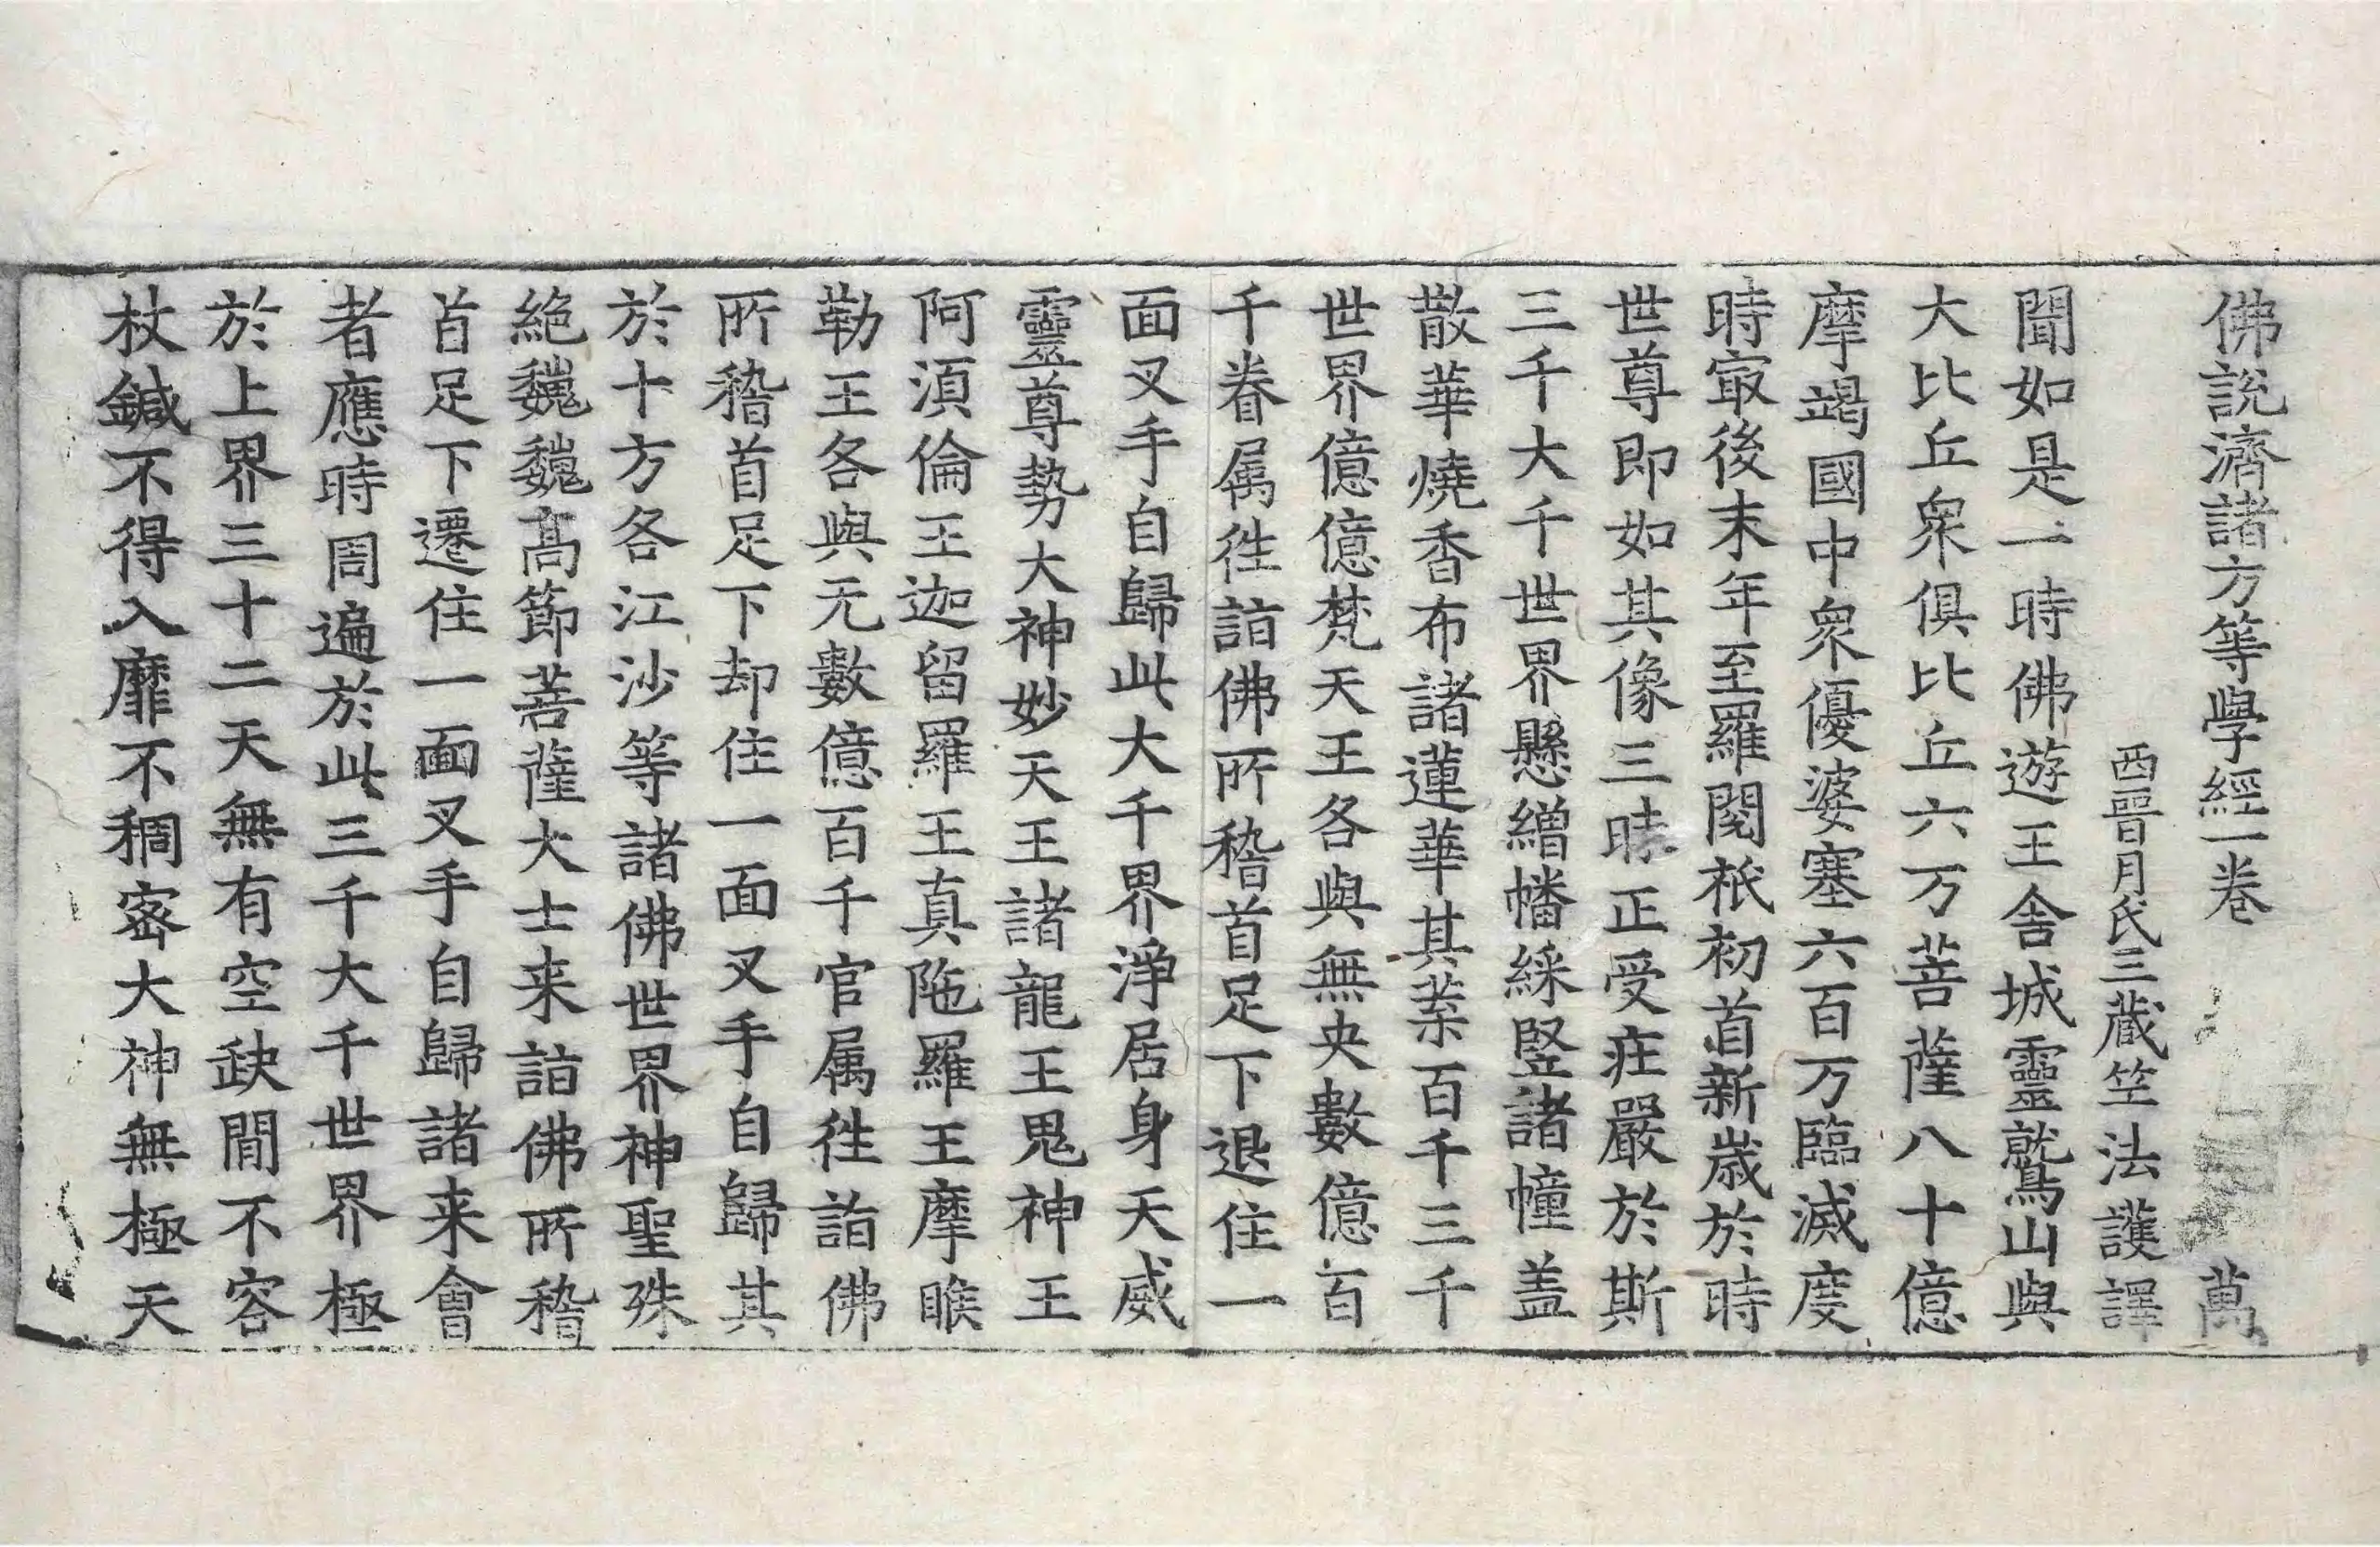 佛說濟諸方等學經一卷 萬
西晉月氏三藏竺法護譯
聞如是一時佛遊王舍城靈鷲山與
大比丘衆俱比丘六万菩薩八十億
摩竭國中衆優婆塞六百万臨滅度
時㝡後末年至羅閱祇初首新歲於時
世尊即如其像三昧正受莊嚴於斯
三千大千世界懸繒幡綵竪諸幢盖
散華燒香布諸蓮華其葉百千三千
世界億億梵天王各與無央數億百
千眷属徃詣佛所稽首足下退住一
面叉手自歸此大千界淨居身天威
靈尊勢大神妙天王諸龍王鬼神王
阿須倫王迦留羅王真陁羅王摩睺
勒王各與无數億百千官属徃詣佛
所稽首足下却住一面叉手自歸其
於十方各江沙等諸佛世界神聖殊
絕巍巍髙節菩薩大士来詣佛所稽
首足下遷住一面叉手自歸諸来會
者應時周遍於此三千大千世界極
於上界三十二天無有空缺間不容
杖鍼不得入靡不稠宻大神無極天